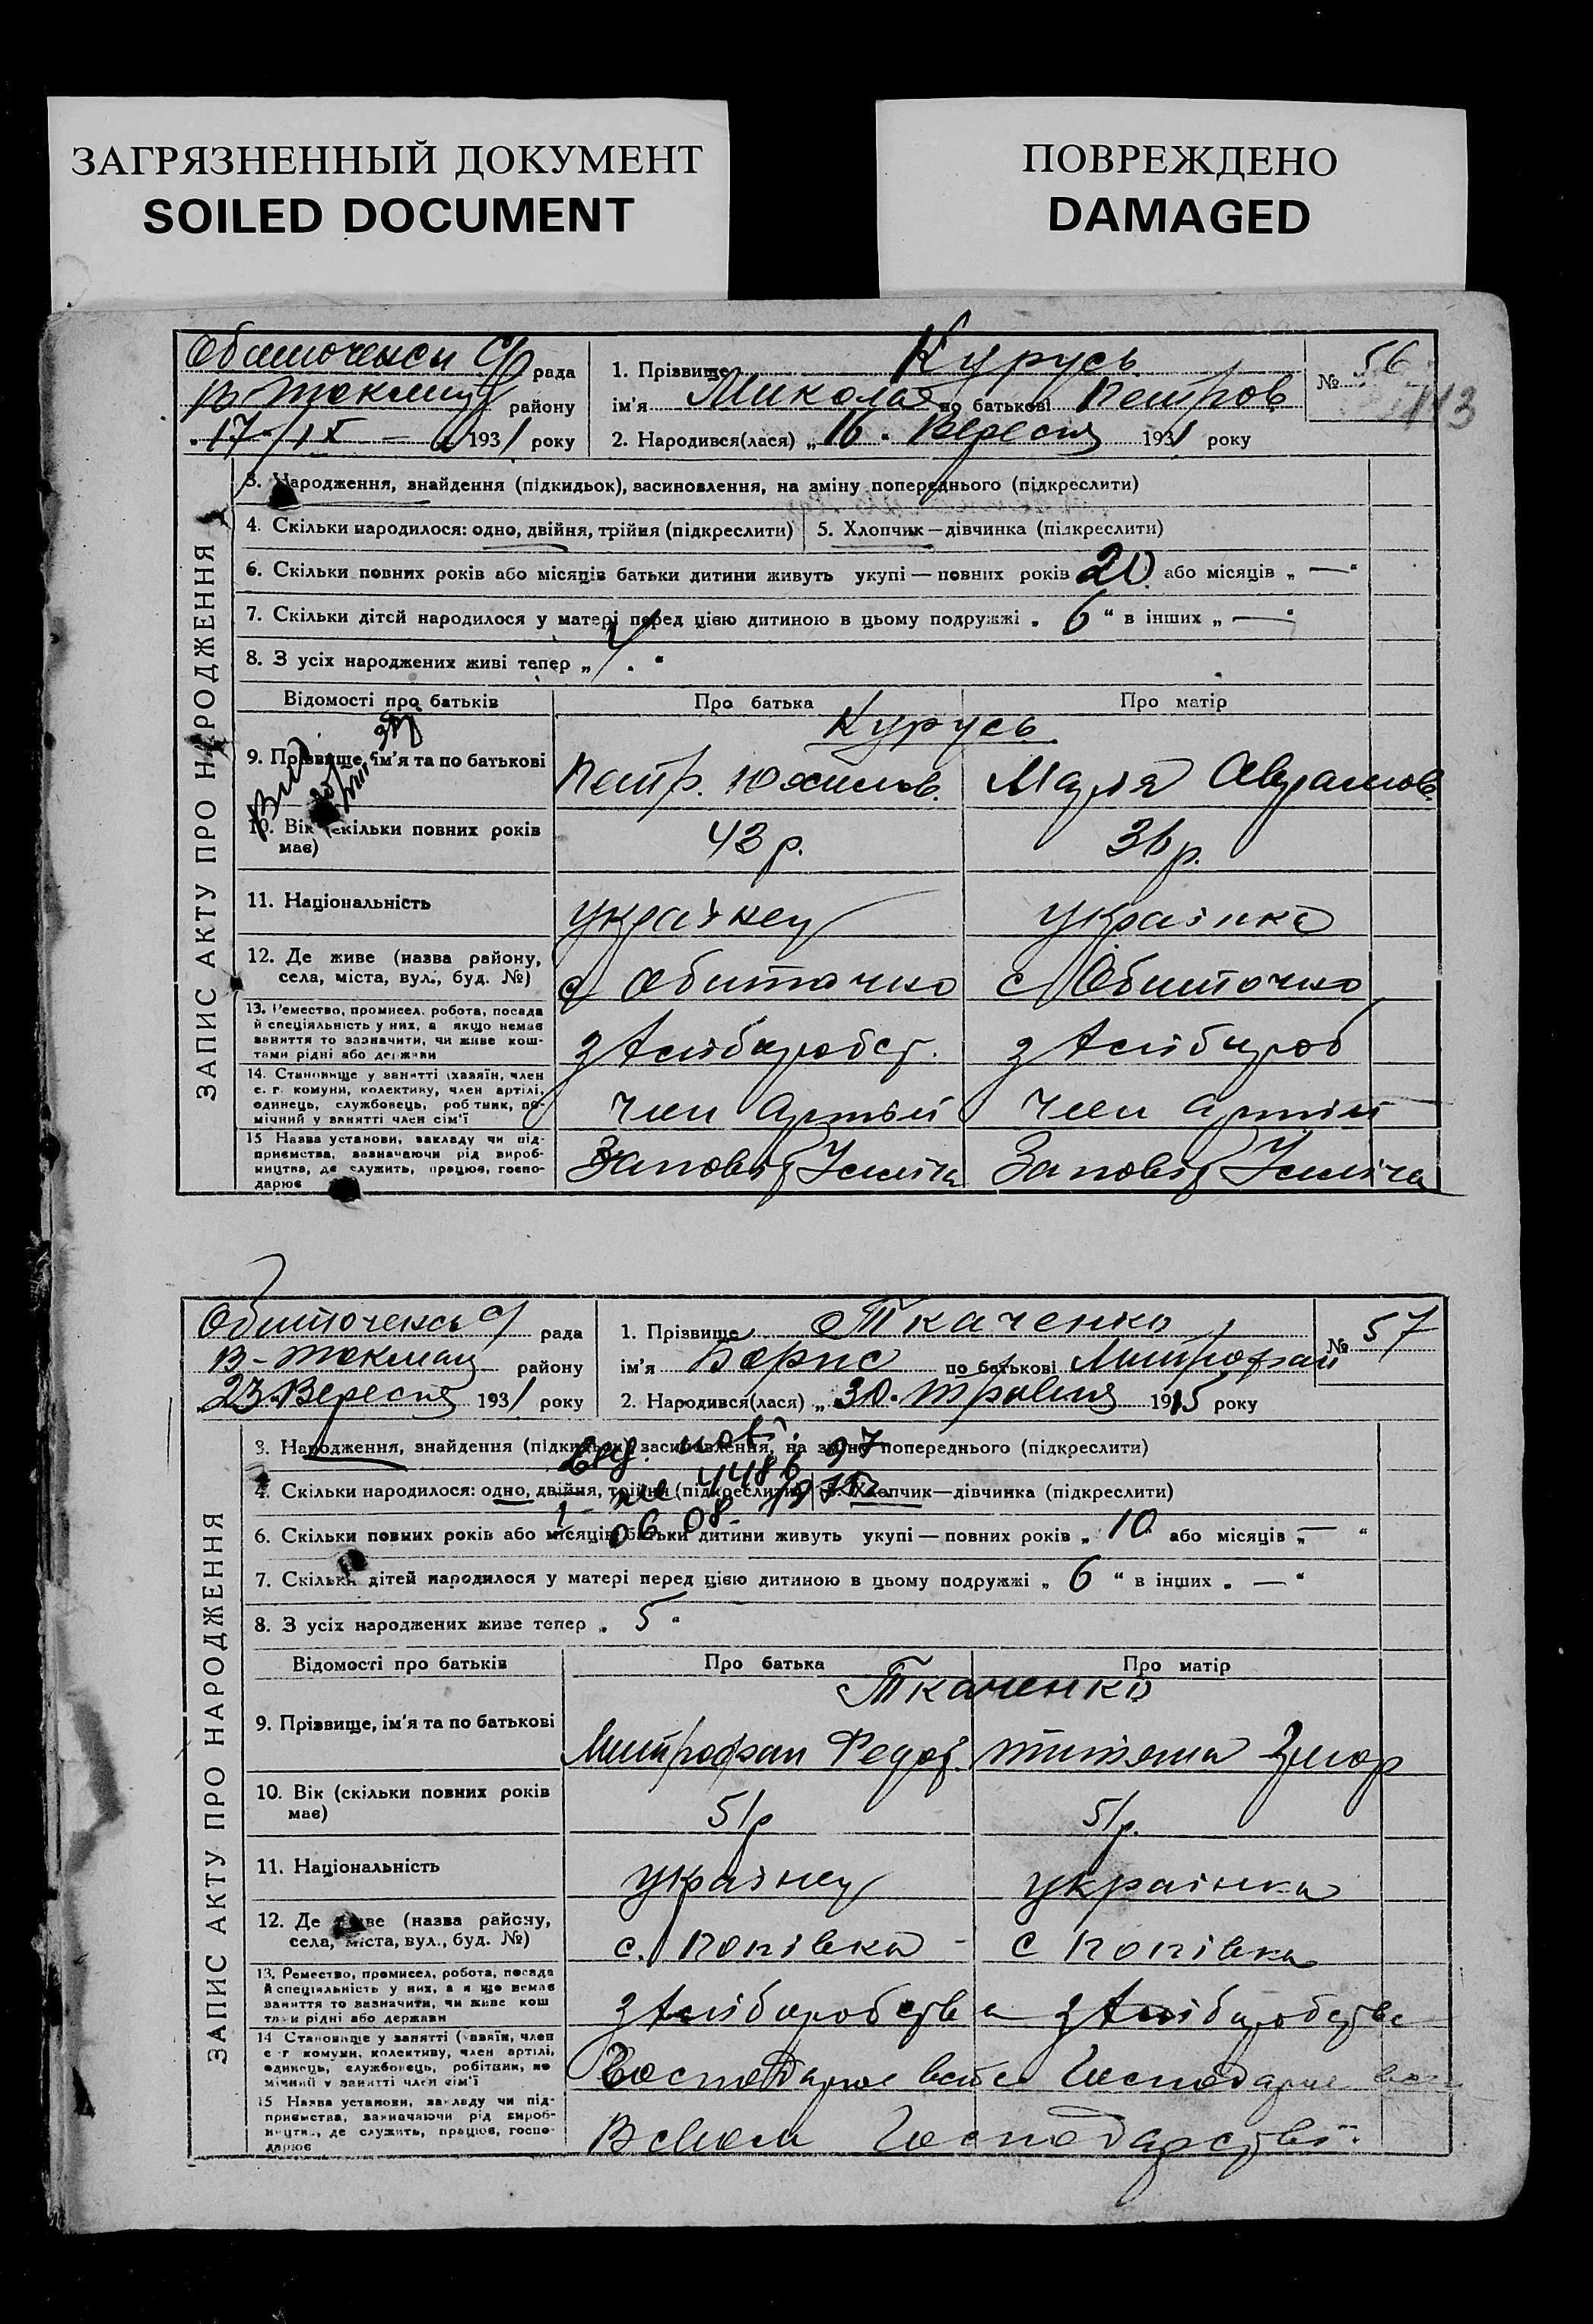 ЗАГРЯЗНЕННЫЙ ДОКУМЕНТ
SOILED DOCUMENT
ПОВРЕЖДЕНО
DAMAGED
рада
району
17/IX 1931 року
1. Прізвище Курусь
ім'я Микола по батькові Петров
2. Народився(лася) „16" Вересня 1931 року
№ 56
113
ЗАПИС АКТУ ПРО НАРОДЖЕННЯ
3. Народження, знайдення (підкидьок), засиновлення, на зміну попереднього (підкреслити)
4. Скільки народилося: одно, двійня, трійня (підкреслити)
5. Хлопчик—дівчинка (підкреслити)
6. Скільки повних років або місяців батьки дитини живуть укупі — повних років 20 або місяців „ — "
7. Скільки дітей народилося у матері перед цією дитиною в цьому подружжі „ 6 " в інших „ — "
8. З усіх народжених живі тепер „
Відомості про батьків
Про батька
Про матір
Курусь
9. Прізвище, ім'я та по батькові
Петр. Юхимов.
Марія Аврамов
10. Вік (скільки повних років має)
43 р.
36 р.
11. Національність
українец
українка
12. Де живе (назва району, села, міста, вул., буд. №)
с Обиточно
с Обиточно
13. Ремество, промисел, робота, посада й спеціяльність у них, а якщо немає заняття то зазначити, чи живе коштами рідні або держави
хлібороб
14. Становище у занятті (хазяїн, член с. г. комуни, колективу, член артілі, одинець, службовець, робітник, помічний у занятті член сім'ї
член Артілі
член артілі
15 Назва установи, закладу чи підприємства, зазначаючи рід виробництва, де служить, працює, господарює
Заповіт Ілліча
Заповіт Ілліча
рада
В-Токмац району
23 Вересня 1931 року
1. Прізвище Ткаченко
ім'я Борис по батькові Митрофан
2. Народився(лася) „30" травня 1915 року
№ 57
ЗАПИС АКТУ ПРО НАРОДЖЕННЯ
3. Народження, знайдення (підкидьок), засиновлення, на зміну попереднього (підкреслити)
4. Скільки народилося: одно, двійня, трійня (підкреслити)
5. Хлопчик—дівчинка (підкреслити)
6. Скільки повних років або місяців батьки дитини живуть укупі — повних років „ 10 " або місяців „ — "
7. Скільки дітей народилося у матері перед цією дитиною в цьому подружжі „ 6 " в інших „ — "
8. З усіх народжених живе тепер „ 5 "
Відомості про батьків
Про батька
Про матір
Ткаченко
9. Прізвище, ім'я та по батькові
Митрофан Федор.
10. Вік (скільки повних років має)
51 р
51 р.
11. Національність
українец
українка
12. Де живе (назва району, села, міста, вул., буд. №)
с. Попівка
с Попівка
13. Ремество, промисел, робота, посада й спеціяльність у них, а якщо немає заняття то зазначити, чи живе коштами рідні або держави
хліборобства
хліборобства
14 Становище у занятті (хазяїн, член с г комуни, колективу, член артілі, одинець, службовець, робітник, помічний у занятті член сім'ї
15 Назва установи, закладу чи підприємства, зазначаючи рід виробництва, де служить, працює, господарює
В своєм Господарстві.